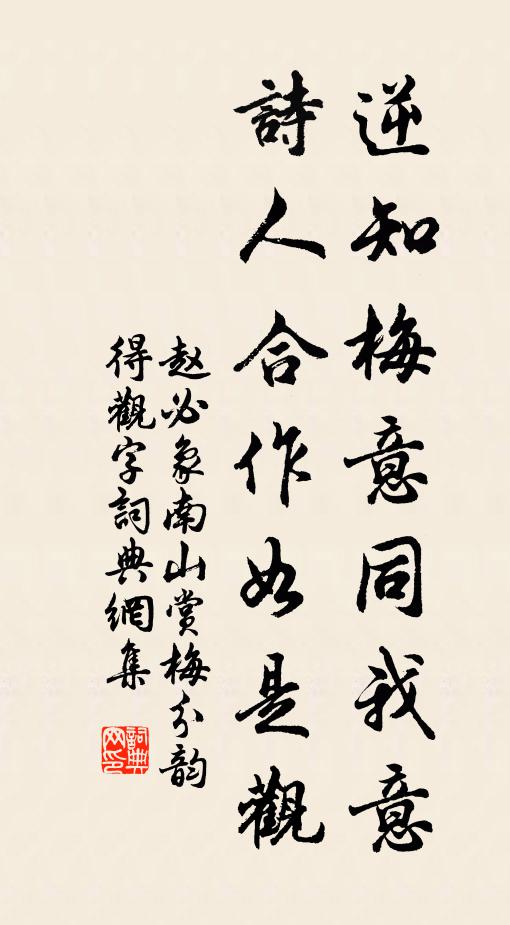 逆知梅意同我意
詩人合作如是觀
赵必象南山赏梅分韵
得觀字詞典網集
詞典
网印